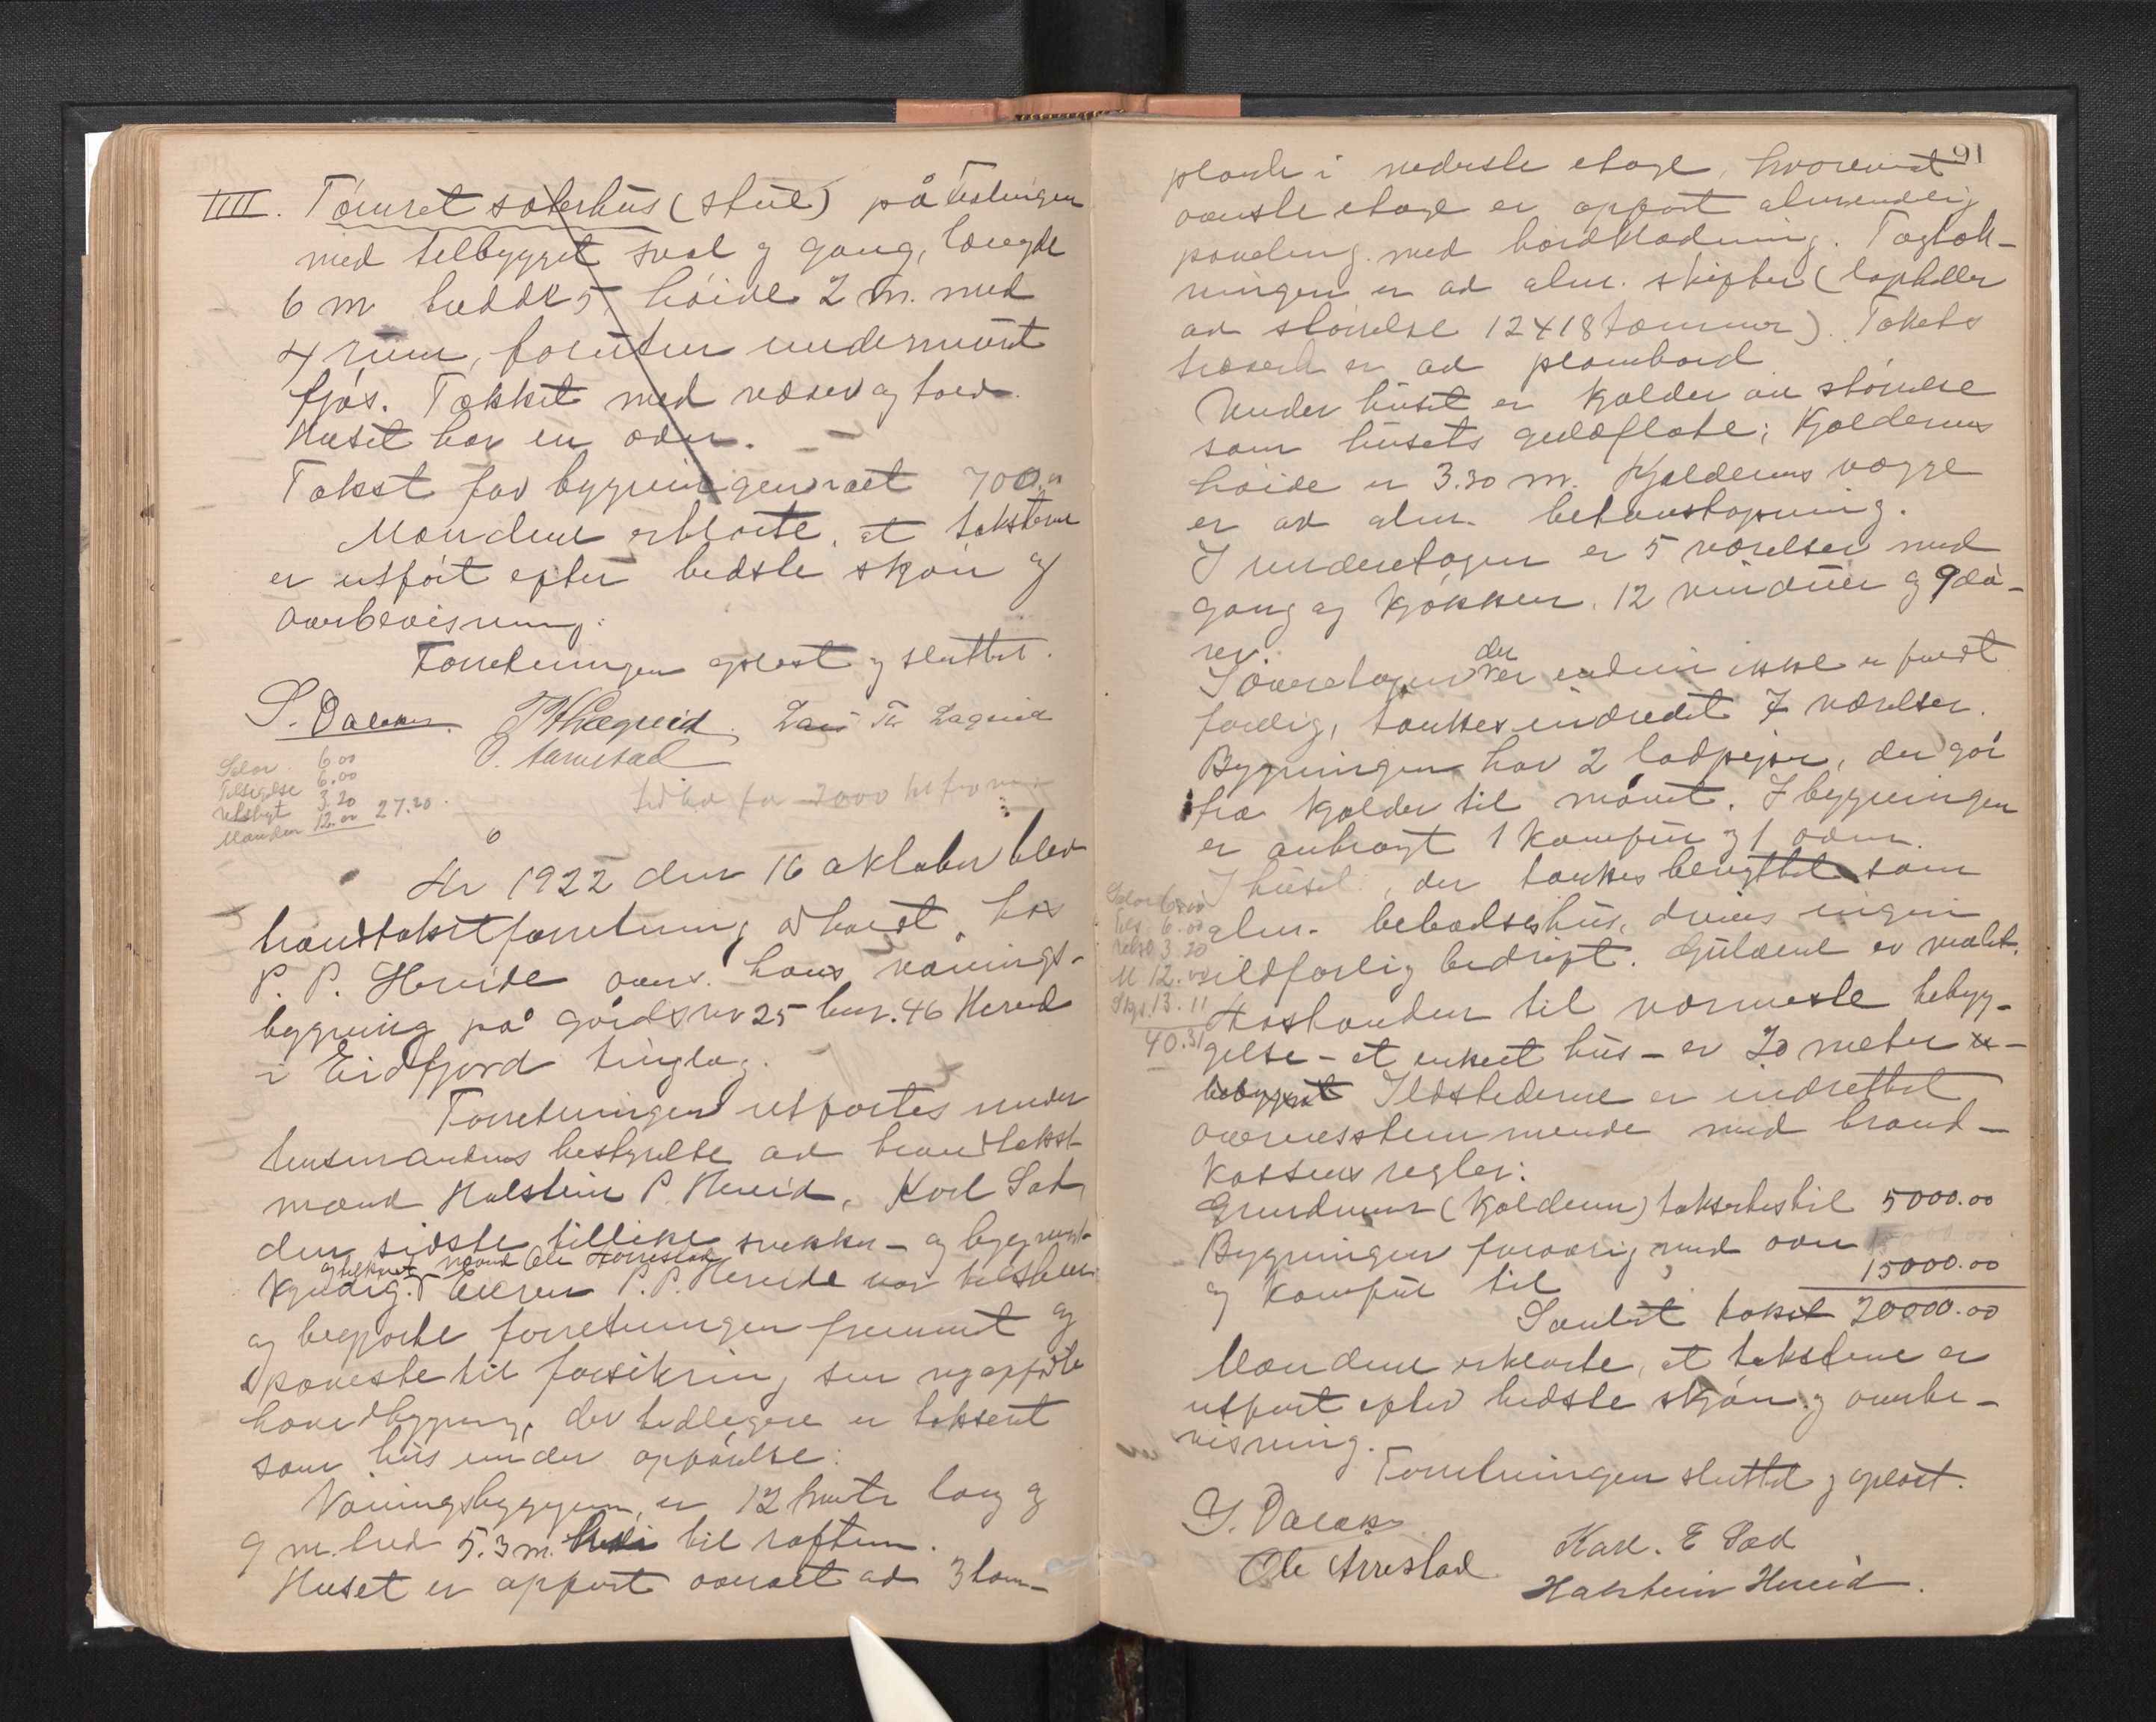 IIII. Tømret säterhus (stue) på
med tilbygget sval og gang, længde
6 m bredde 5, høide 2 m. med
4 rum, foruten undermuret
fjøs. Tækket med næver og
Huset har en ovn.
Takst for bygningen 700.
Mændene erklærte, at taksterne
er utført efter bedste skjøn og
overbevisning.
Forretningen oplæst og sluttet.
S. Lars Th Lægreid
Salær 6.00
Tilsigelse 6.00
3.20
Mænden 12.00 27.20
År 1922 den 16 oktober blev
brandtakstforretning avholdt hos
P. P. Hereide over hans vånings-
bygning på gårdsnr 25 bnr. 46 Hereid
i Eidfjord tinglag.
Forretningen utførtes under
lensmandens bestyrelse av brandtakst-
mænd Halstein P. Hereid, Karl Sæd,
den sidste tillike snekker- og bygnings-
mand Ole Arrestad
kyndig. Eieren P. P. Hereide var tilstede
og begjærte forretningen fremmet og
til forsikring sin nyopførte
hovedbygning, der tidligere er taksert
som hus under opførelse.
Våningsbygningen er 12 meter lang og
9 m. bred 5.3 m. til raften.
Huset er opført overalt av 3 tom-
91
plank i nederste etage, hvorimot
øverste etage er opført almindelig
paneling med bordklædning. Tagtæk-
ningen er av alm. skifter (tapheller
av størrelse 12x18 tommer). Takets
træverk er av plombord
Under huset er kjælder av størrelse
som husets gulvflate; Kjælderens
høide er 3.30 m. Kjælderens vægge
er av alm. betonstøpning.
I underetagen er 5 værelser med
gang og kjøkken. 12 vinduer og 9 dø-
rer.
der
I overetagen endnu ikke er fuldt
færdig, tænkes indredet 7 værelser.
Bygningen har 2 lodpiper, der går
fra kjælder til mønet. I bygningen
er anbragt 1 komfur og 1 ovn.
I huset, der tænkes benyttet som
alm. bebodelseshus, drives ingen
ildfarlig bedrift. Gulvene er malet.
Salær 6.00
Tils. 6.00
3.20
M 12.00
13.11
40.31
Avstanden til nærmeste bebyg-
gelse - et enkelt hus - er 20 meter u-
bebygget Ildstederne er indrettet
overensstemmende med brand-
kassens regler:
Grundmur (kjælderen) taksertes til 5000.00
Bygningen forøvrig med ovn
og komfur til 15000.00
Samlet takst 20000.00
Mændene erklærte, at takstene er
utført efter bedste skjøn og overbe-
visning.
Forretningen sluttet og oplæst.
S. Karl. E Sæd
Ole Arrestad Halstein Hereid.